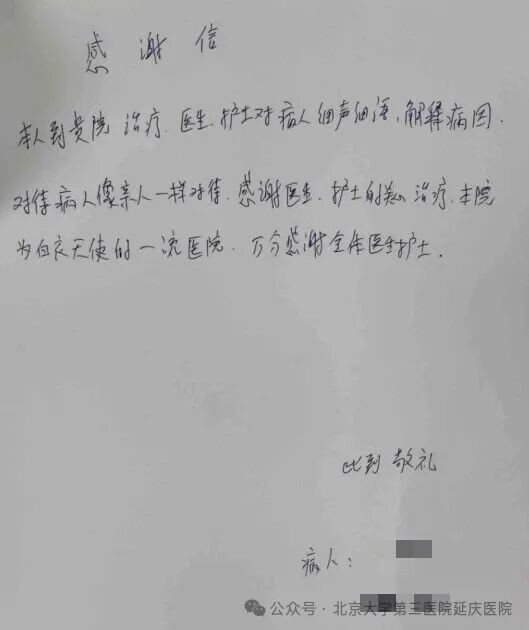 感谢信
本人到贵院治疗.医生.护士对病人细声细语,解释病因.
对待病人像亲人一样对待.感谢医生.护士的热心治疗.本院
为白衣天使的一流医院.万分感谢全体医生护士.
此到敬礼
病人:
公众号·北京大学第三医院延庆医院